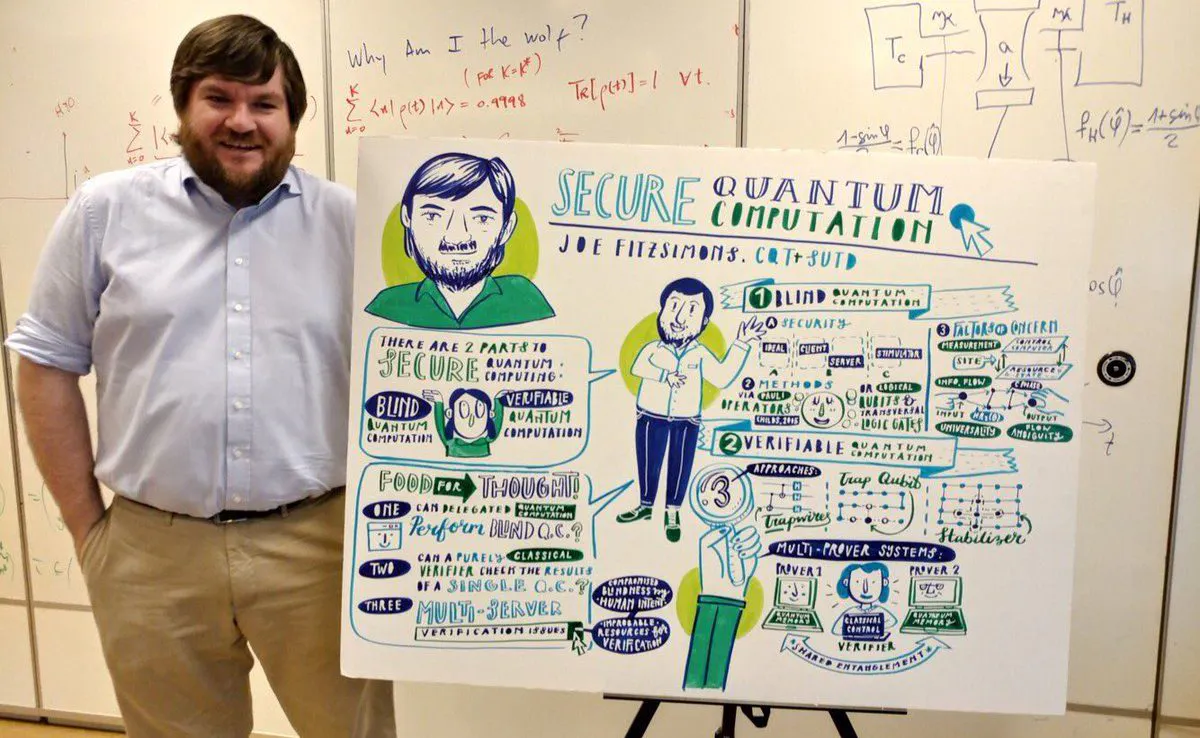 Why Am I the wolf?
(for K=K*)
∑ ⟨n|ρ(t)|n⟩ = 0.9998
K
n=0
Tr[ρ(t)]=1 ∀t.
K
∑
n=0
T_C
T_H
a
f_H(φ̂)=1+sinφ̂
2
SECURE QUANTUM
COMPUTATION
JOE FITZSIMONS. CQT+SUTD
THERE ARE 2 PARTS TO
SECURE QUANTUM
COMPUTING:
BLIND
QUANTUM
COMPUTATION
VERIFIABLE
QUANTUM
COMPUTATION
FOOD FOR THOUGHT!
ONE CAN DELEGATED QUANTUM COMPUTATION
Perform BLIND Q.C.?
TWO CAN A PURELY CLASSICAL
VERIFIER CHECK THE RESULTS
OF A SINGLE Q.C.?
THREE MULTI-SERVER
VERIFICATION ISSUES
COMPROMISED
BLINDNESS by
HUMAN INTENT.
IMPROBABLE
RESOURCES for
VERIFICATION
1 BLIND QUANTUM
COMPUTATION
A SECURITY
IDEAL CLIENT SERVER SIMULATOR
A B C
2 METHODS
VIA PAULI
OPERATORS
CHILDS, 2015
OR LOGICAL
QUBITS &
TRANSVERSAL
LOGIC GATES
3 FACTORS OF CONCERN
MEASUREMENT
CONTROL
COMPUTER
SITE
RESOURCE
STATE
INFO. FLOW
CPHASE
INPUT
OUTPUT
UNIVERSALITY
FLOW
AMBIGUITY
2 VERIFIABLE QUANTUM
COMPUTATION
3
APPROACHES:
Trapwires
Trap Qubit
Stabilizer
MULTI-PROVER SYSTEMS:
PROVER 1
PROVER 2
QUANTUM
MEMORY
CLASSICAL
CONTROL
QUANTUM
MEMORY
VERIFIER
SHARED ENTANGLEMENT